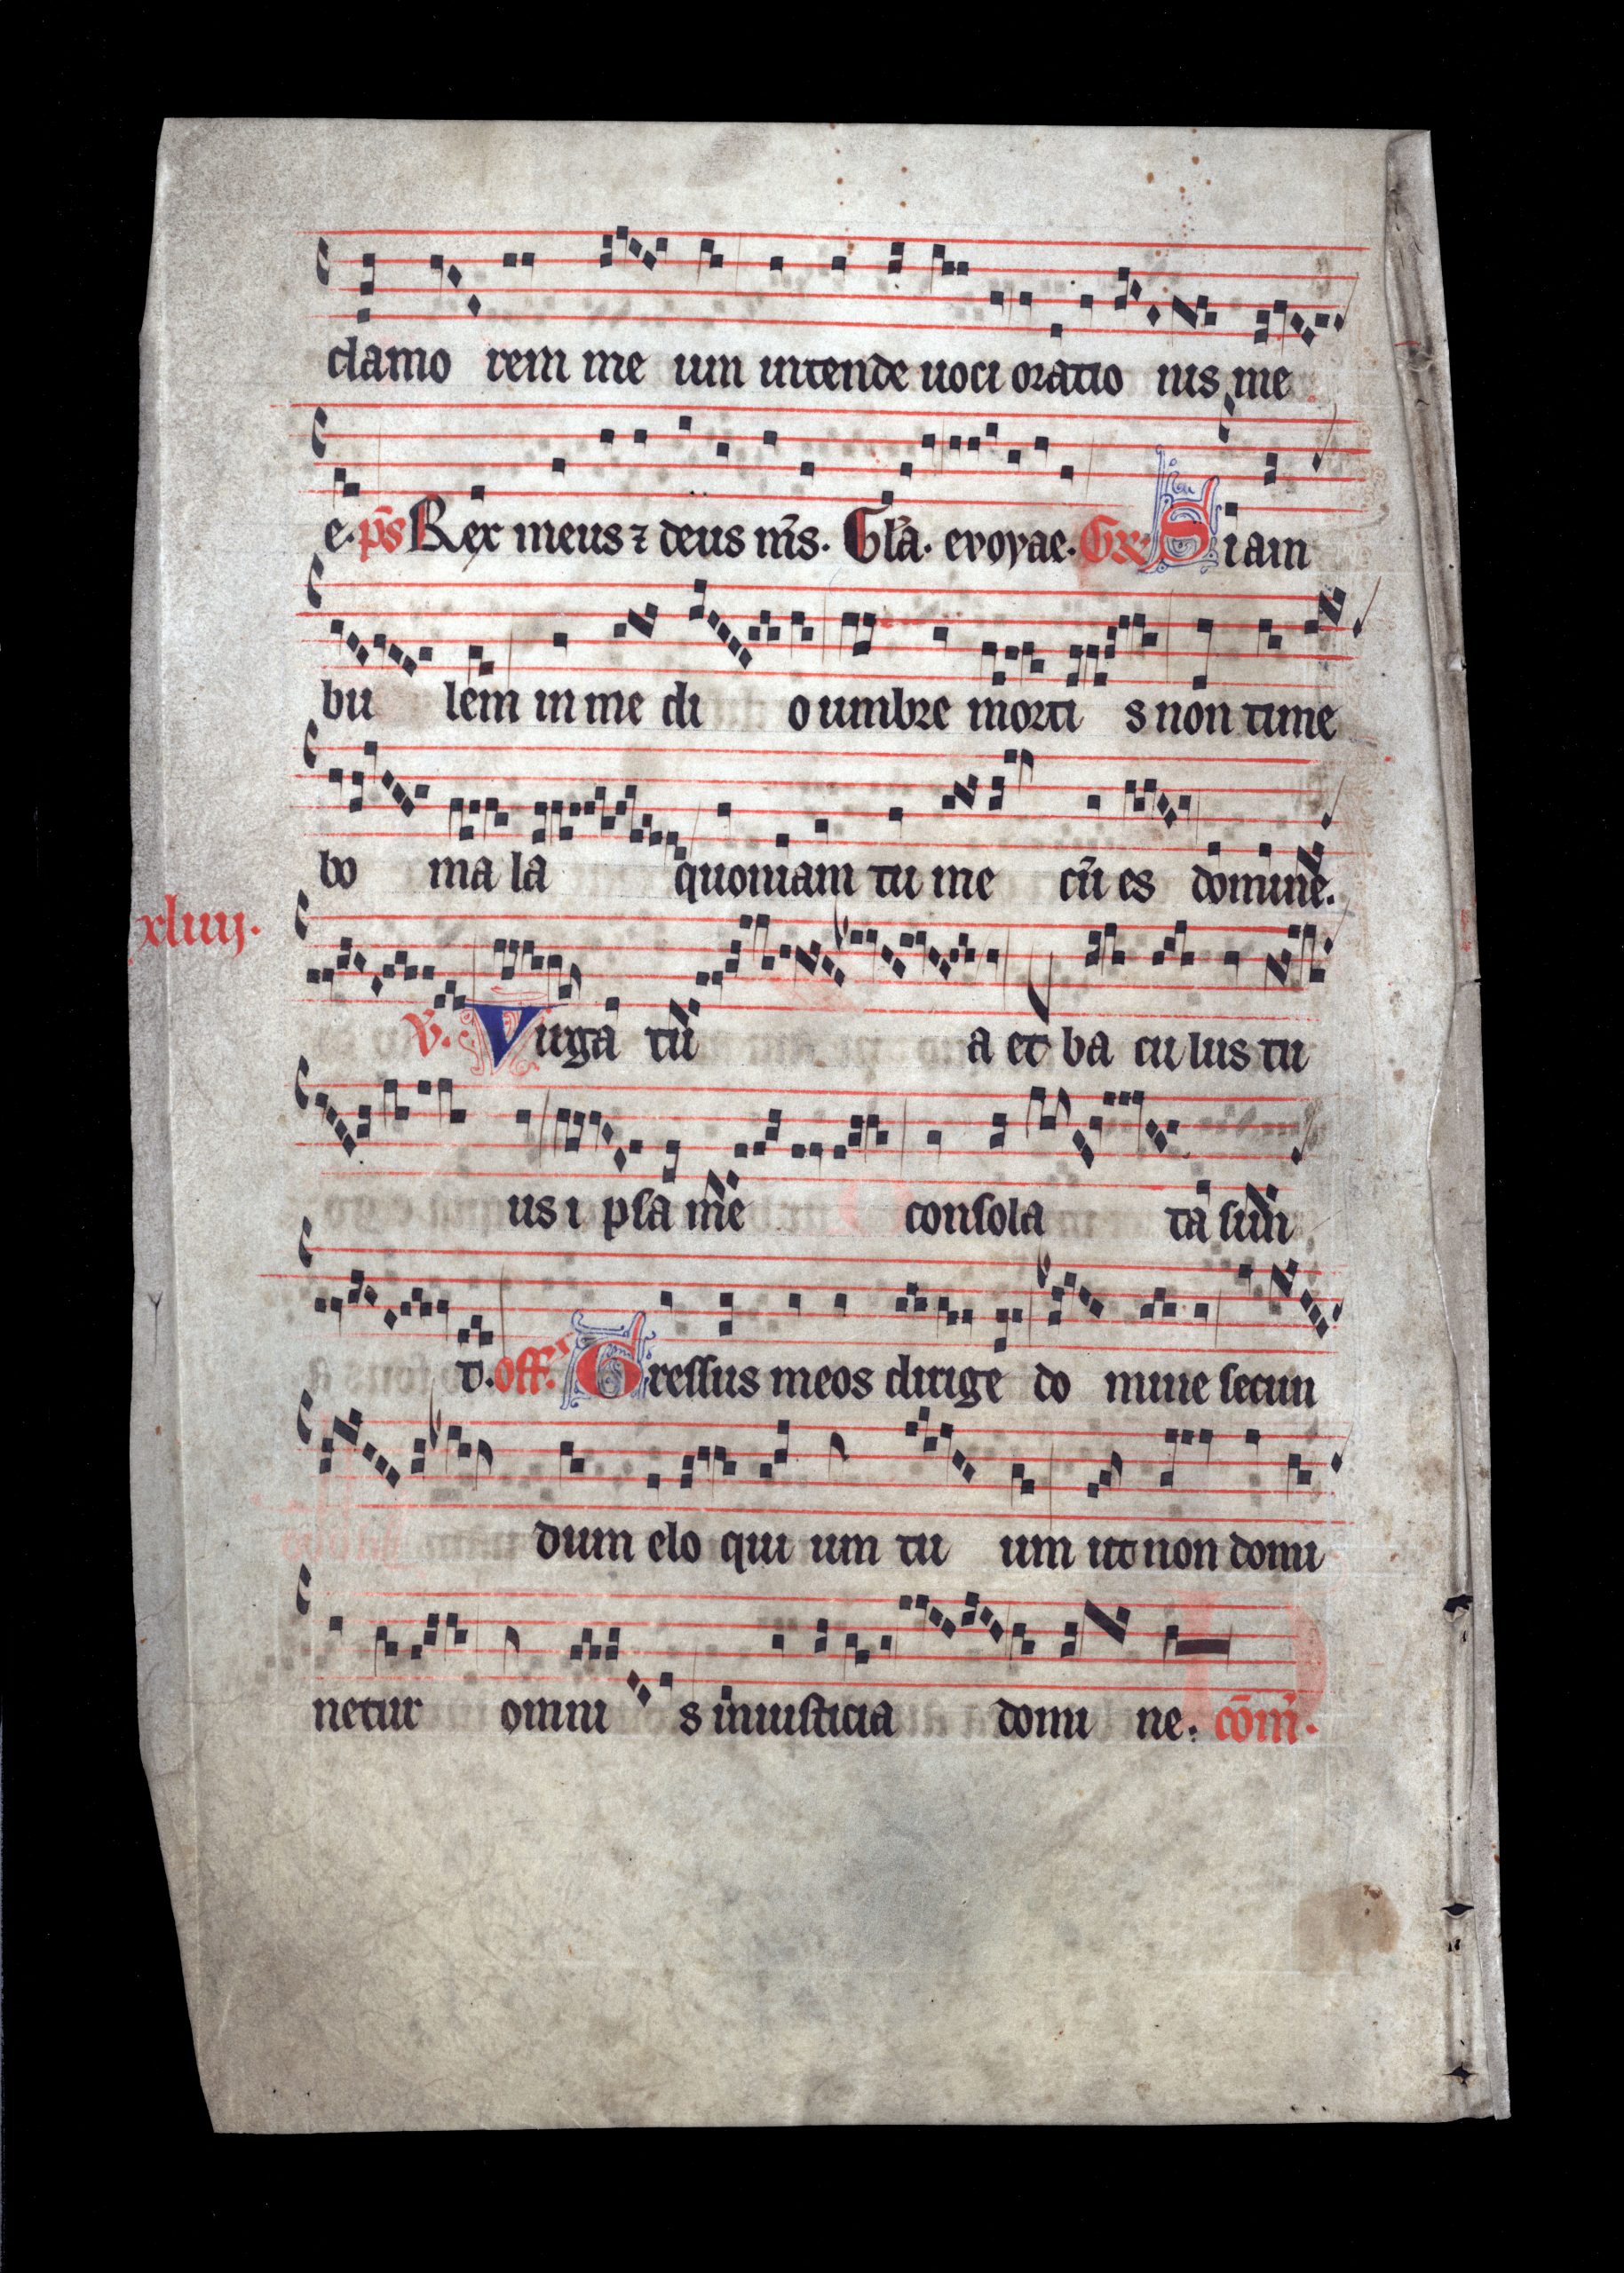 clamo rem me um intende uoci oratio nis me
e. ps̄ Rex meus ⁊ deus m̄s. Gl̄a. evovae. Gr̄. Si am
bu lem in me di o umbre morti s non time
bo ma la quoniam tu me cū es domine.
xliiij.
V̄. Virga tu a et ba culus tu
us i psa me consola ta sun
t. Off. Gressus meos dirige do mine secun
dum elo qui um tu um ut non domi
netur omni s iniusticia domi ne. cōm̄.